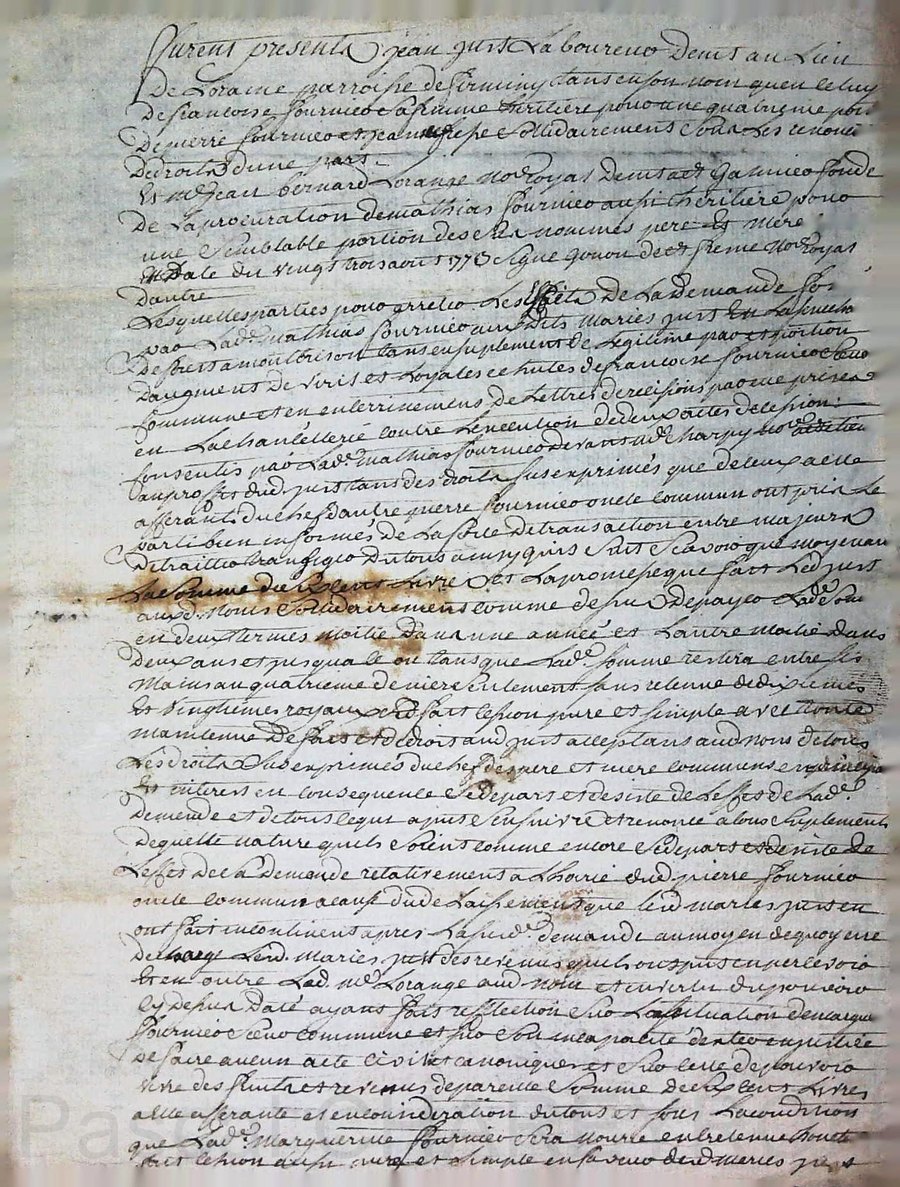 furent presents jean just laboureur demt au lieu
De Loraine parroisse de firminy tans en son nom quen celuy
De francoise fourmier sa femme heritiere pour une quatrieme por
De pierre fourmier et jeanne solidairement sous les renon
De droits d'une part
Et me jean bernard Lorange nore royal demt a st Galmier fondé
De La procuration de mathias fourmier aussi heritière pour
une semblable portion des sus nommés pere et mère
en Date du vingt trois aout 1773 signe gonon de et nore royal
Dautre
Lesquelles parties pour arreter Les effets de La demande for
par Lade mathias fourmier aux dits maries just en La
De forest a montbrison tans en suplement de legitime par et portion
Daugment de et Loyales echutes de francoise fourmier leur
commune et en enterrinement de Lettres de recisions par eux prises
en La chancellerie contre Lexecution de deux actes de cession
consentis par Lade mathias fourmier devant me charpy nore
au proffit dud just tans des droits sus exprimés que de ceux a elle
afferants du chef dautre pierre fourmier oncle commun ont pris Le
parti bien informés de La force de transaction entre majeurs
De traitter transiger du tout ainsy quil suit scavoir que moyenant
La somme de six cent Livre et La promesse que fait Led just
aux d. noms solidairement comme dessus de payer Lade
en deux termes moitié dans une année et Lautre moitié dans
Deux ans et jusqua ce ou tans que Lade somme restera entre ses
mains au quatrieme denier seulement sans retenue de dixiemes
Et vingtiemes royaux fait cession pure et simple avec toute
maintenue de fait et de droit aud just acceptans aud nons de tous
Les droits sus exprimés du chef des pere et mere communs en principa
Et interets en consequence se depart et desiste de Leffet de Lade
Demande et de tous ce qui a pu sensuivre et renonce a tous suplements
De quelle nature quils soient comme encore se depart et desiste de
Leffet de la demande relativement a Lhoirie dud pierre fourmier
oncle commun a cause du delaissement que led maries just en
ont fait incontinent apres La sude demande au moyen de quoy
Decharge Led. maries just des revenus quils ont pu en percevoir
Et en outre Lad. me Lorange aud nom et en vertu du pouvoir
cy dessus Daté ayant fait reflection sur La situation de marguerite
fourmier sœur commune et sur son incapacité
De faire aucun acte civil et canonique et sur celle de pouvoir
vivre des fruits et revenus de pareille somme de six cent Livres
a elle afferante et en consideration du tout et sous La condition
que Lade marguerite fourmier sera nourie entretenue
fait cession aussi pure et simple en faveur desd maries just